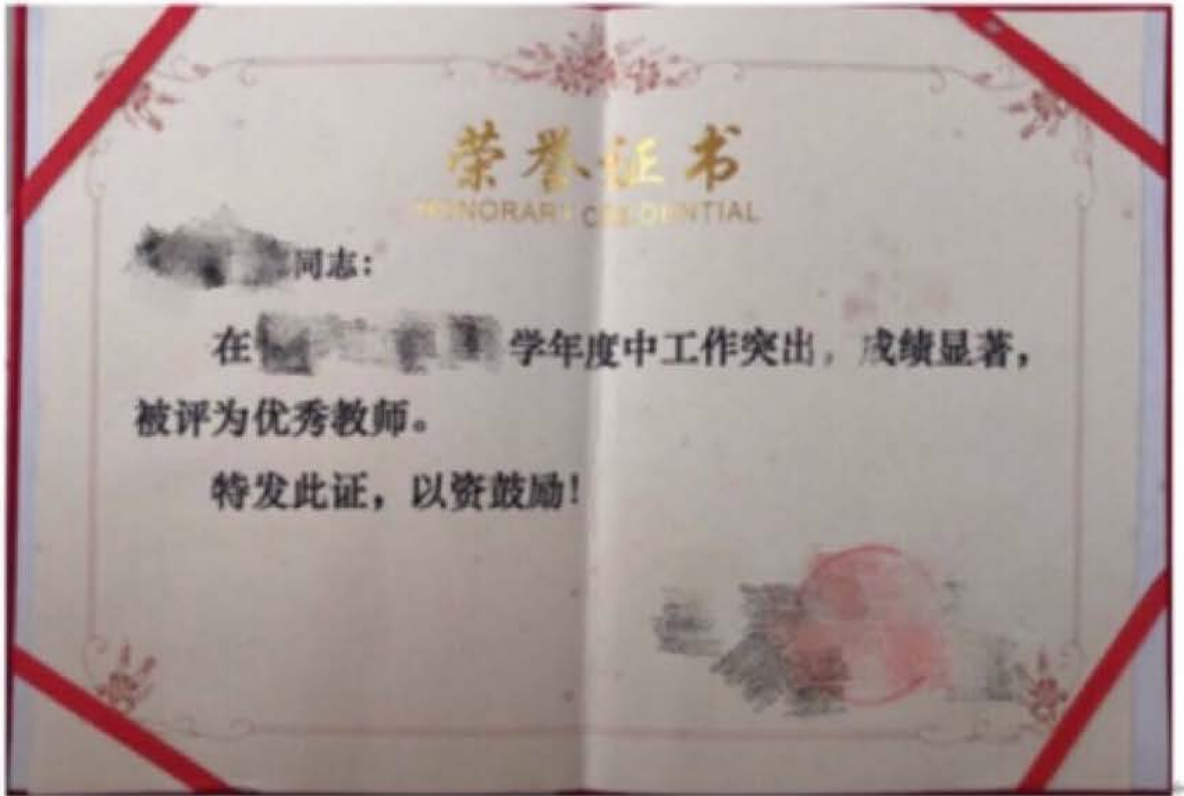 荣誉证书
HONORARY CREDENTIAL
同志：
在学年度中工作突出，成绩显著，
被评为优秀教师。
特发此证，以资鼓励！